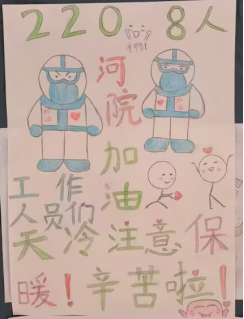 2208人
河院加油
工作
人员们
天冷注意保
暖！辛苦啦！